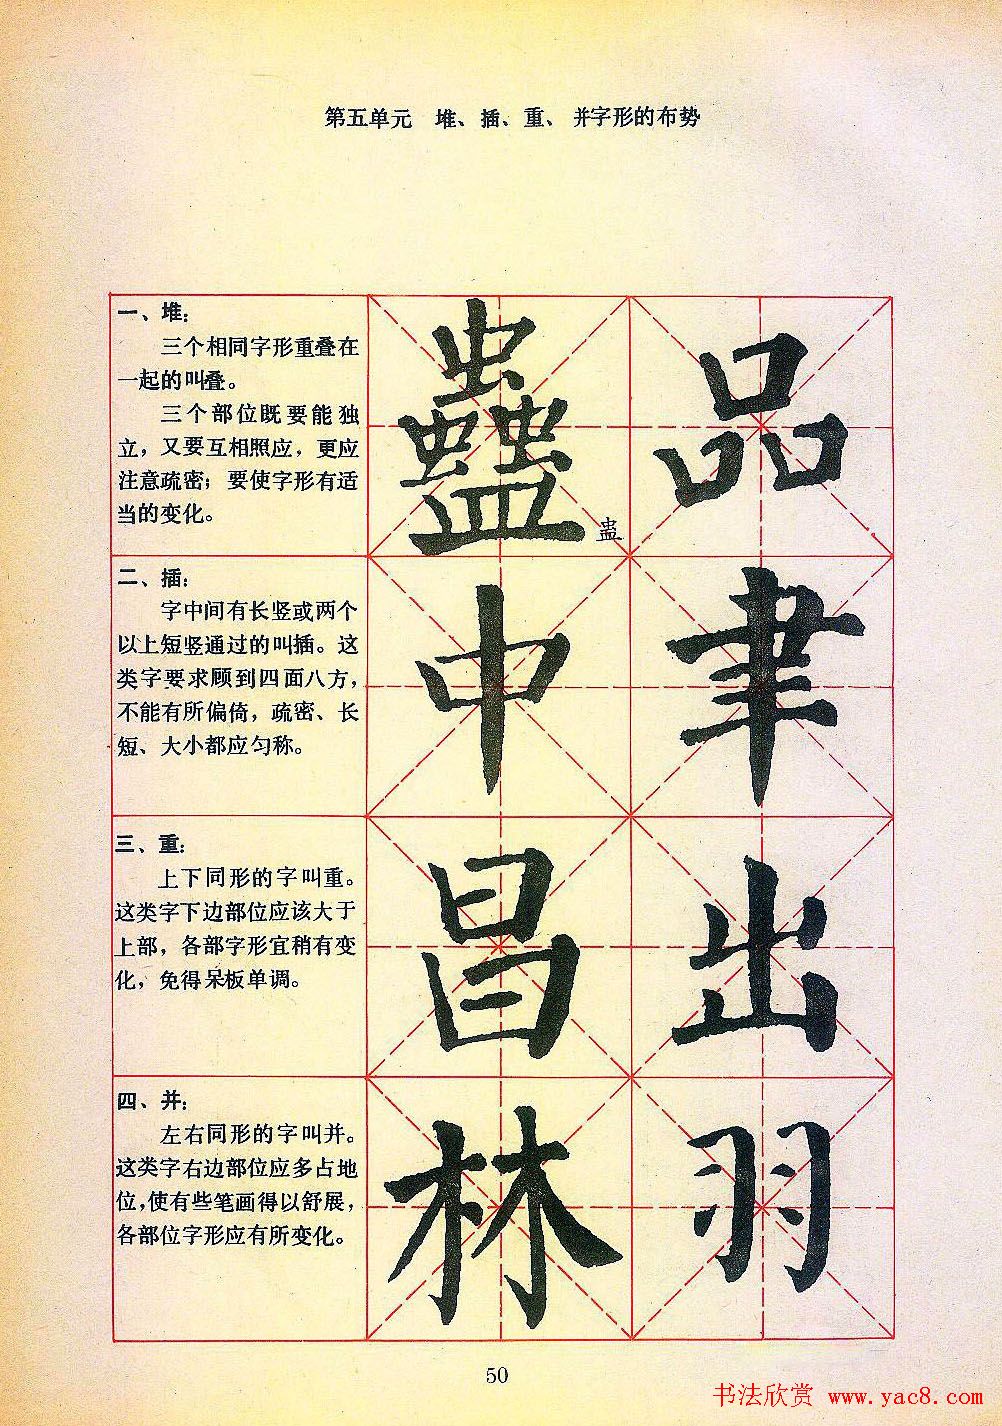 第五单元 堆、插、重、并字形的布势
一、堆：
三个相同字形重叠在
一起的叫叠。
三个部位既要能独
立，又要互相照应，更应
注意疏密；要使字形有适
当的变化。
蠱 品
蛊
二、插：
字中间有长竖或两个
以上短竖通过的叫插。这
类字要求顾到四面八方，
不能有所偏倚，疏密、长
短、大小都应匀称。
中 聿
三、重：
上下同形的字叫重。
这类字下边部位应该大于
上部，各部字形宜稍有变
化，免得呆板单调。
昌 出
四、并：
左右同形的字叫并。
这类字右边部位应多占地
位，使有些笔画得以舒展，
各部位字形应有所变化。
林 羽
50
书法欣赏 www.yac8.com